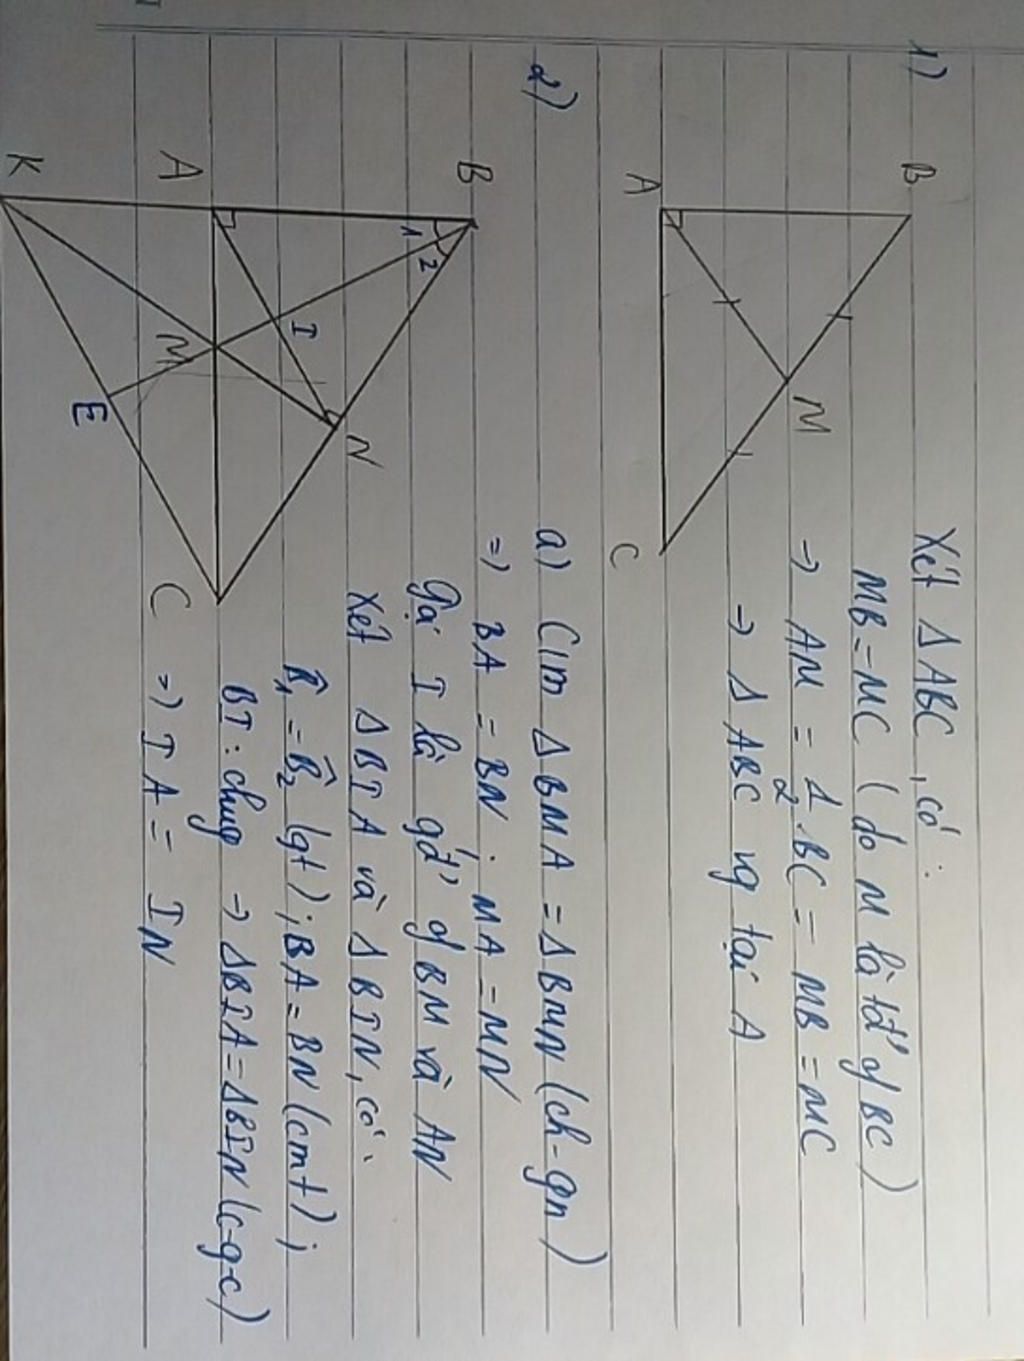 1)
B
A
M
C
Xét Δ ABC, có:
MB = MC (do M là tđ' of BC)
→ AM = 1/2 . BC = MB = MC
→ Δ ABC vg tại A
2)
B
1
2
A
K
I
M
E
N
C
a) C/m Δ BMA = Δ BMN (ch - gn)
=> BA = BN ; MA = MN
Gọi I là gđ' of BM và AN
Xét Δ BIA và Δ BIN, có:
B̂₁ = B̂₂ (gt) ; BA = BN (cmt) ;
BI : chug → ΔBIA = ΔBIN (c-g-c)
=> IA = IN